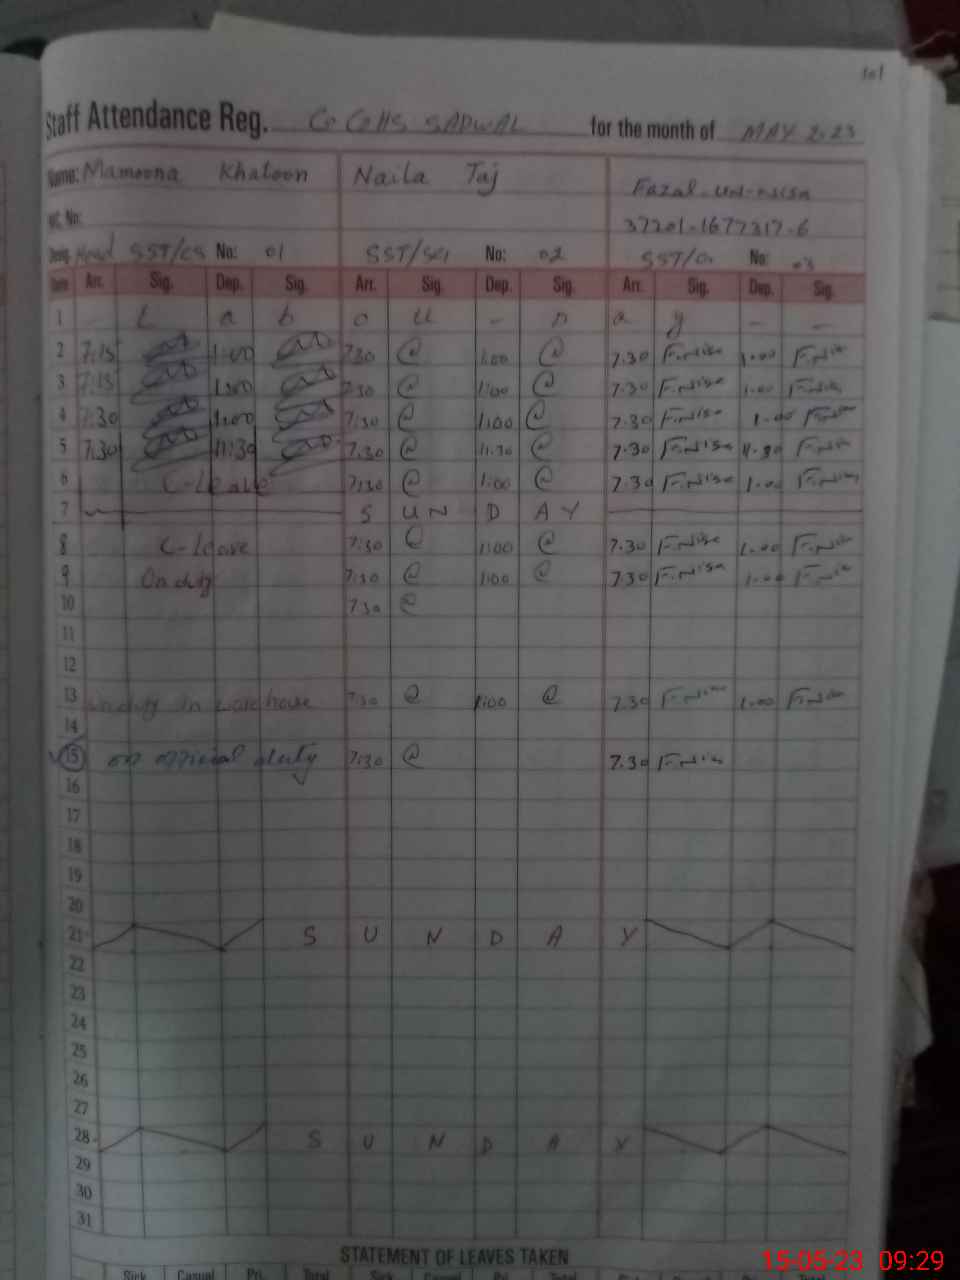 101
Staff Attendance Reg. GGHS SADWAL for the month of MAY 2023
Name: Mamoona Khatoon Naila Taj Fazal-un-nisa
No: 37201-1677317-6
Desig. Head SST/CS No: 01 SST/Sci No: 02 SST/G No: 03
Date Arr. Sig. Dep. Sig. Arr. Sig. Dep. Sig. Arr. Sig. Dep. Sig.
1 L a b o u - D a y - -
2 7:15 1:00 7:30 1:00 7.30 F.Nisa 1.00 F.Nisa
3 7:15 1:00 7:30 1:00 7.30 F.Nisa 1.00 F.Nisa
4 7:30 1:00 7:30 1:00 7.30 F.Nisa 1.00 F.Nisa
5 7:30 11:30 7:30 11:30 7.30 F.Nisa 11.30 F.Nisa
6 C-leave 7:30 1:00 7.30 F.Nisa 1.00 F.Nisa
7 S U N D A Y
8 C-leave 7:30 1:00 7.30 F.Nisa 1.00 F.Nisa
9 On duty 7:30 1:00 7.30 F.Nisa 1.00 F.Nisa
10 7:30
11
12
13 duty in warehouse 7:30 1:00 7.30 F.Nisa 1.00 F.Nisa
14
15 on official duty 7:30 7.30 F.Nisa
16
17
18
19
20
21 S U N D A Y
22
23
24
25
26
27
28 S U N D A Y
29
30
31
STATEMENT OF LEAVES TAKEN
Sick Casual Pri. Total Sick Casual Pri. Total
15-05-23 09:29